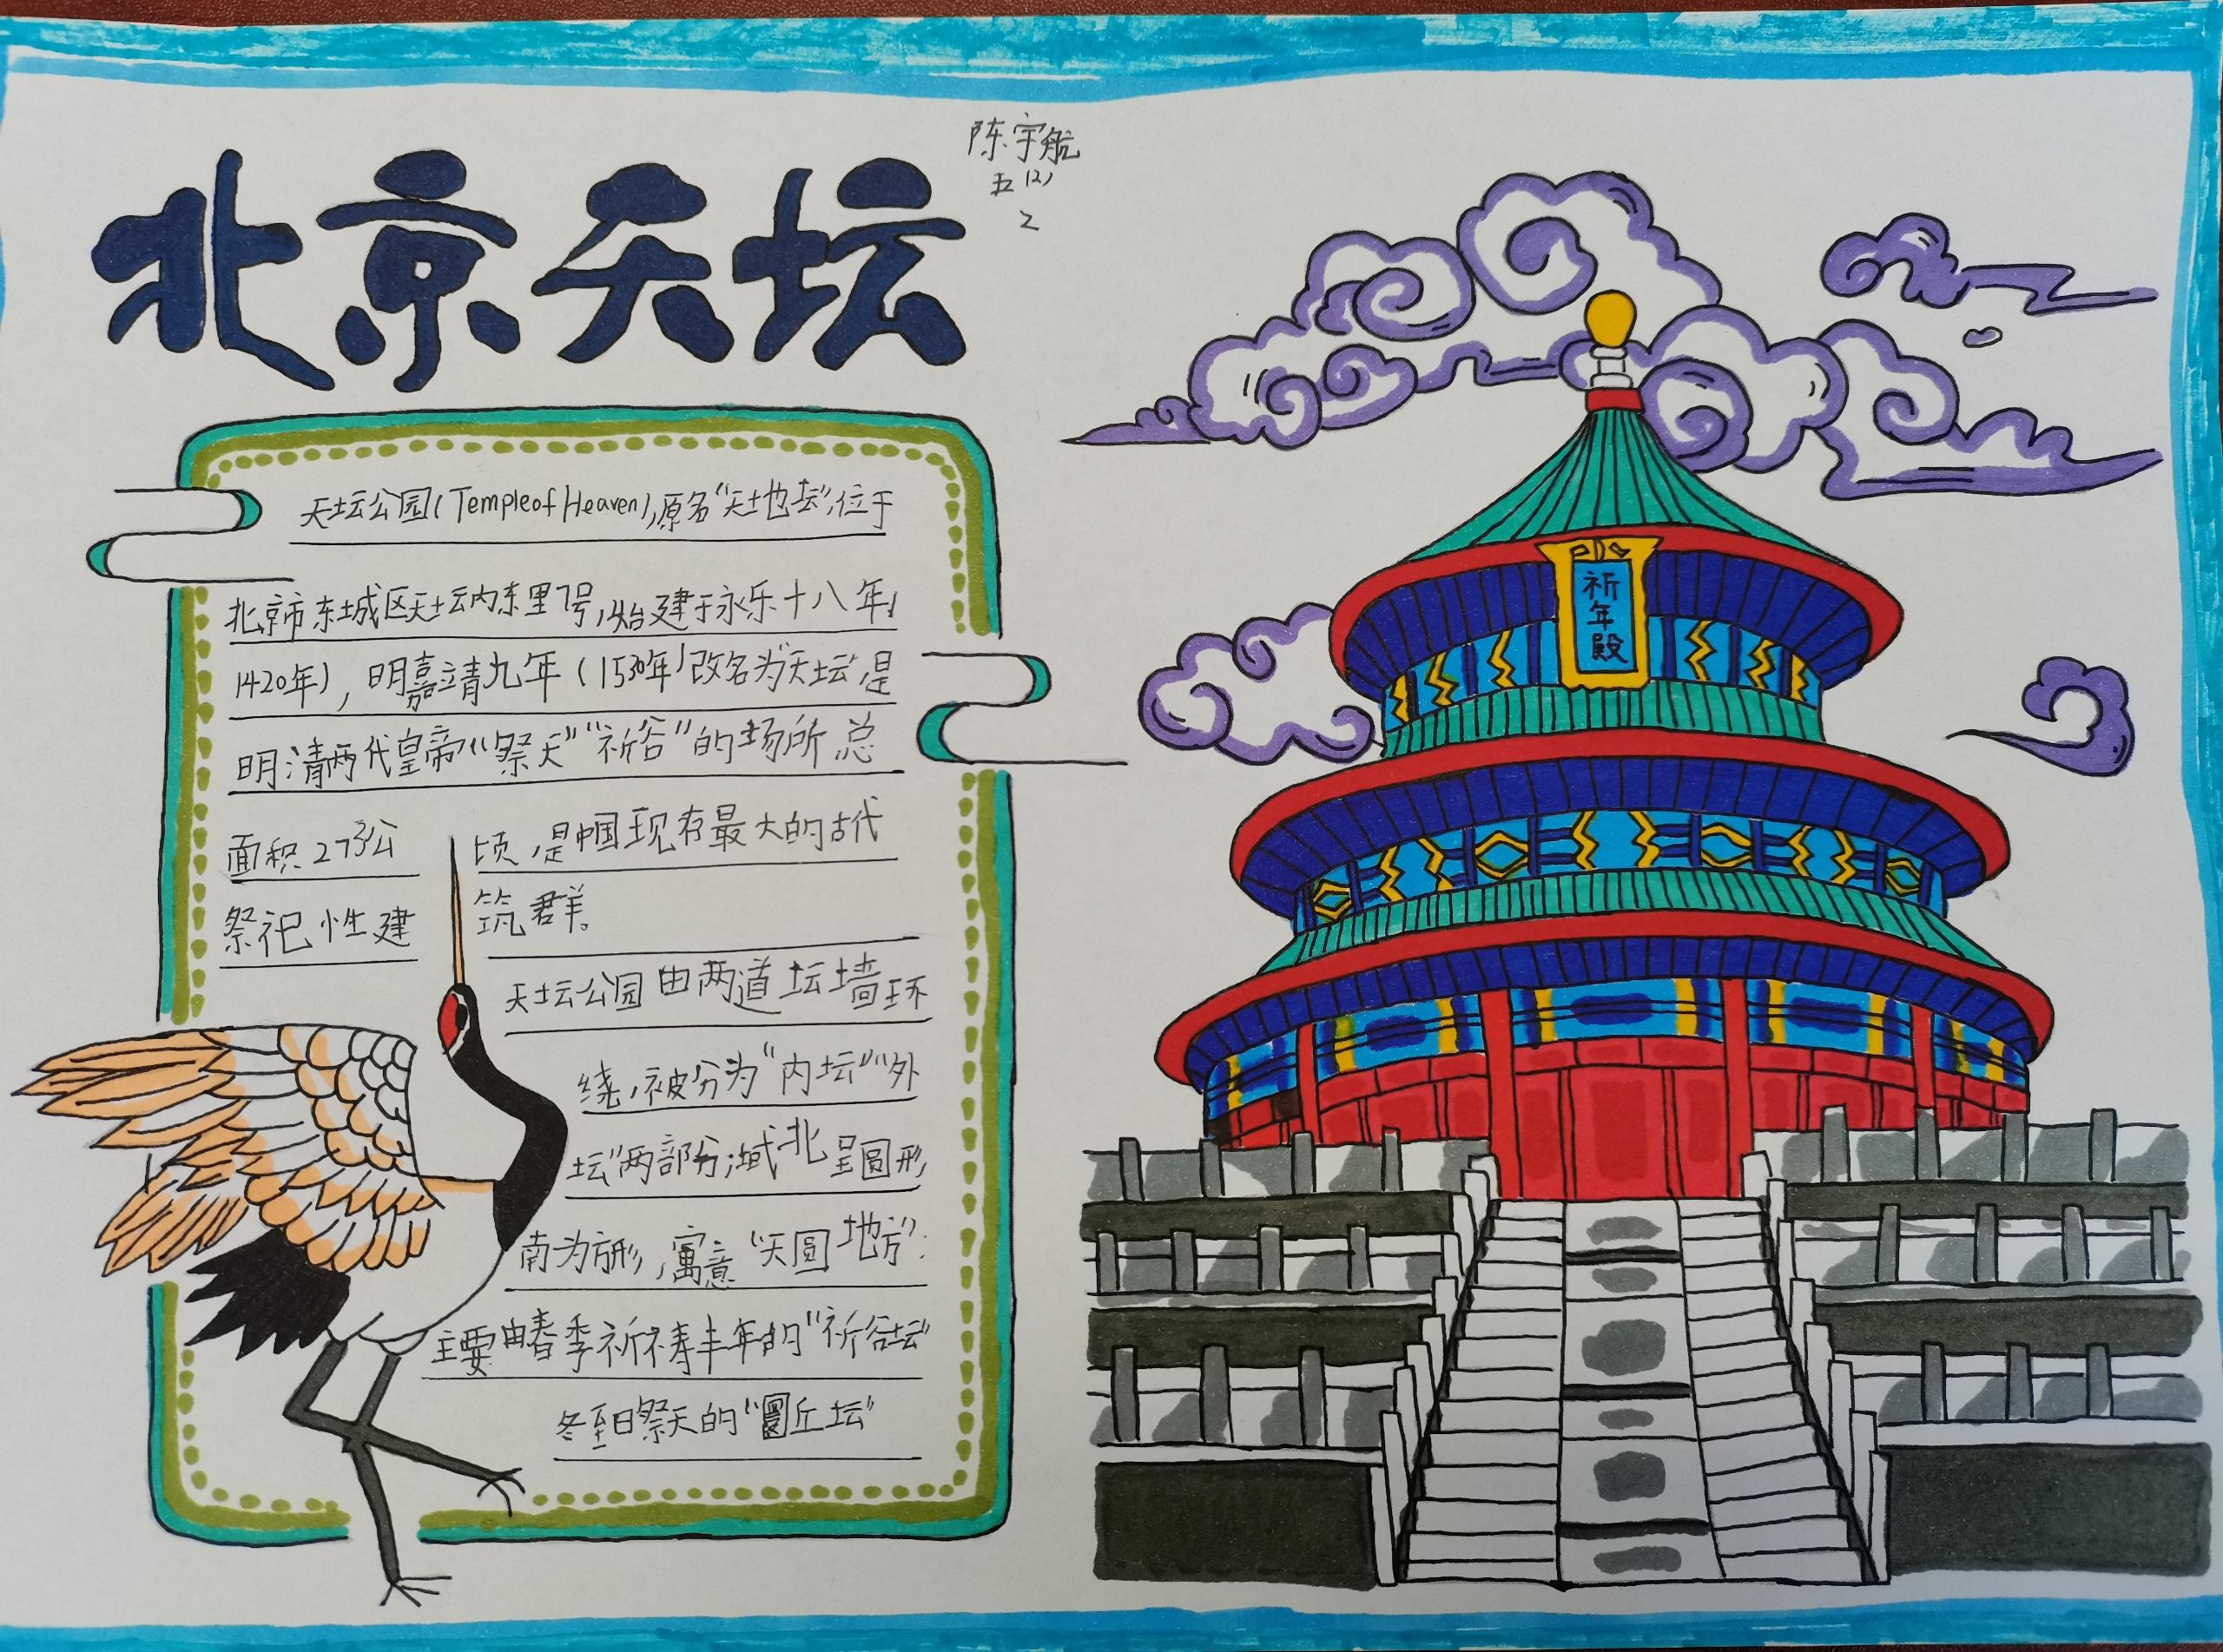 北京天坛
陈宇航
五(2)
2
天坛公园(Temple of Heaven),原名“天地坛”,位于
北京市东城区天坛内东里7号,始建于永乐十八年(
1420年),明嘉靖九年(1530年)改名为“天坛”,是
明清两代皇帝“祭天”“祈谷”的场所,总
面积273公顷,是中国现存最大的古代
祭祀性建筑群。
天坛公园由两道坛墙环
绕,被分为“内坛”“外
坛”两部分;域北呈圆形
南为方形,寓意“天圆地方”:
主要由春季祈祷丰年的“祈谷坛”
冬至日祭天的“圜丘坛”
祈年殿